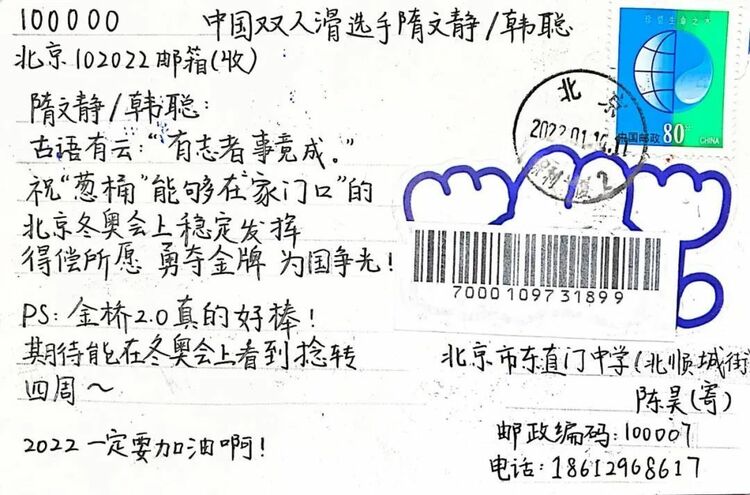 100000
中国双人滑选手隋文静/韩聪
北京102022邮箱(收)
隋文静/韩聪:
古语有云:“有志者事竟成。”
祝“葱桶”能够在“家门口”的
北京冬奥会上稳定发挥
得偿所愿 勇夺金牌 为国争光!
PS: 金桥2.0真的好棒!
期待能在冬奥会上看到捻转
四周~
2022一定要加油啊!
北京
2022.01.14.17
2
珍惜生命之水
中国邮政
80分
CHINA
7000109731899
北京市东直门中学(北顺城街
陈昊(寄)
邮政编码:100007
电话:18612968617